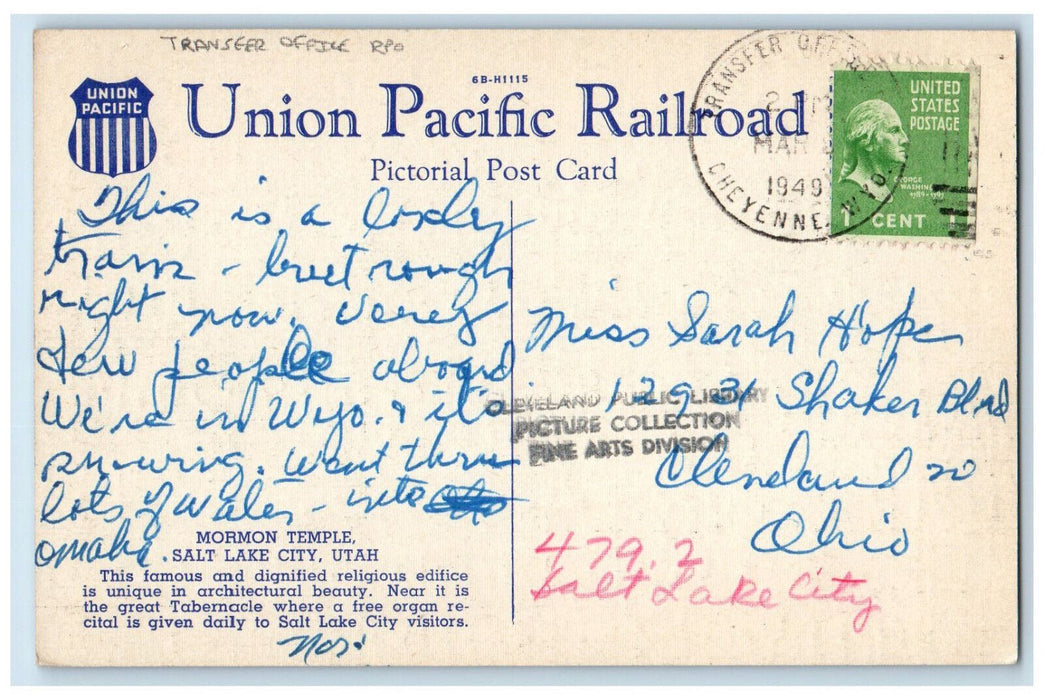 TRANSFER OFFICE RPO
6B-H1115
UNION
PACIFIC
Union Pacific Railroad
Pictorial Post Card
TRANSFER OFFICE
MAR
1949
CHEYENNE, WYO.
UNITED
STATES
POSTAGE
GEORGE
WASHINGTON
1789-1797
1 CENT 1
This is a lovely
train - but rough
right now. Very
few people aboard
We're in Wyo. & it's
snowing. Went thru
lots of water - into
Omaha.
Miss Sarah Hope
12931 Shaker Blvd
Cleveland 20
Ohio
CLEVELAND PUBLIC LIBRARY
PICTURE COLLECTION
FINE ARTS DIVISION
479.2
Salt Lake City
MORMON TEMPLE,
SALT LAKE CITY, UTAH
This famous and dignified religious edifice
is unique in architectural beauty. Near it is
the great Tabernacle where a free organ re-
cital is given daily to Salt Lake City visitors.